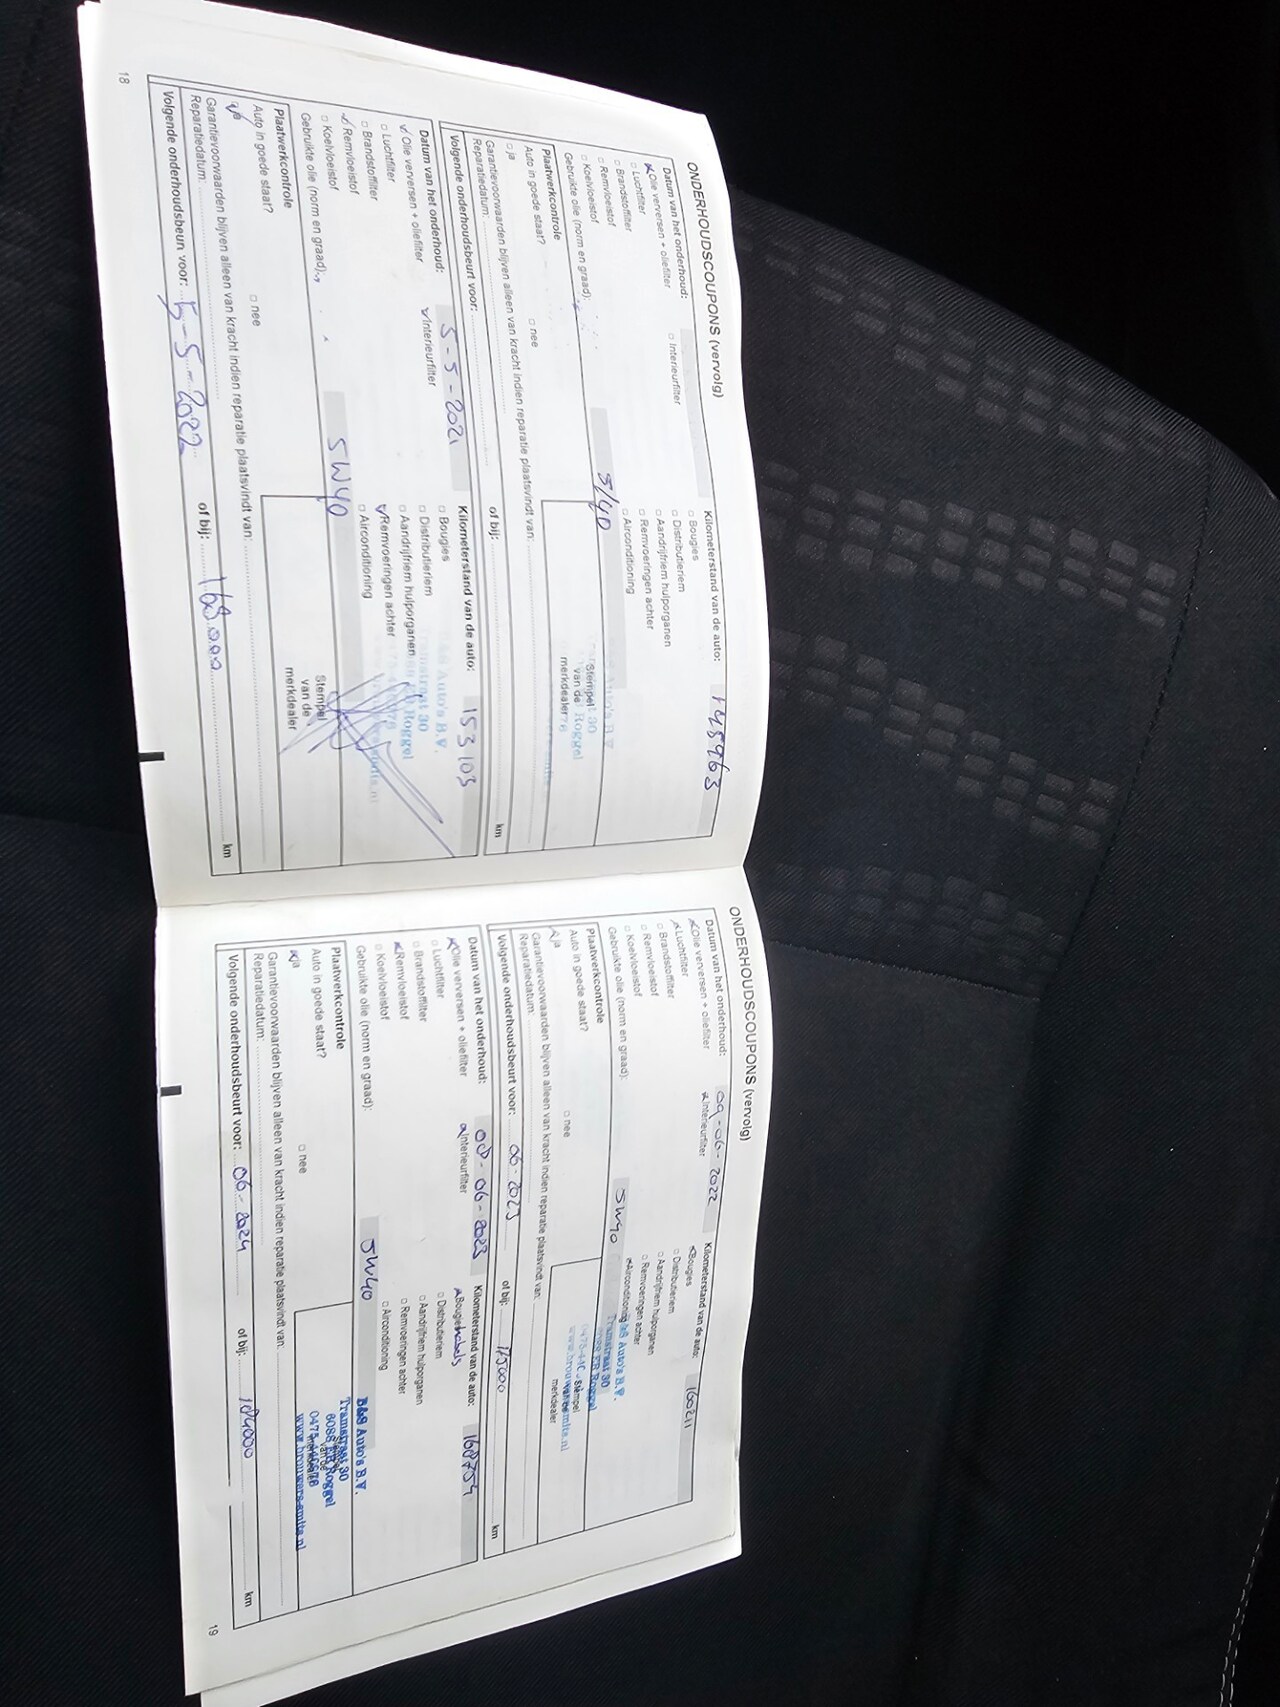 ONDERHOUDSCOUPONS (vervolg)
Datum van het onderhoud:
Kilometerstand van de auto: 145963
Olie verversen + oliefilter
Interieurfilter
Bougies
Luchtfilter
Distributieriem
Brandstoffilter
Aandrijfriem hulporganen
Remvloeistof
Remvoeringen achter
Koelvloeistof
Airconditioning
Gebruikte olie (norm en graad): 5/40
Plaatwerkcontrole
Auto in goede staat?
ja
nee
Stempel
van de
merkdealer
Garantievoorwaarden blijven alleen van kracht indien reparatie plaatsvindt van:
Reparatiedatum:
Volgende onderhoudsbeurt voor:
of bij:
km
Datum van het onderhoud: 5-5-2021
Kilometerstand van de auto: 153103
Olie verversen + oliefilter
Interieurfilter
Bougies
Luchtfilter
Distributieriem
Brandstoffilter
Aandrijfriem hulporganen
Remvloeistof
Remvoeringen achter
Koelvloeistof
Airconditioning
Gebruikte olie (norm en graad): 5W40
Auto's B.V.
30
Roggel
Plaatwerkcontrole
Auto in goede staat?
ja
nee
Stempel
van de
merkdealer
Garantievoorwaarden blijven alleen van kracht indien reparatie plaatsvindt van:
Reparatiedatum:
Volgende onderhoudsbeurt voor: 5-5-2022
of bij: 168.000
km
18
ONDERHOUDSCOUPONS (vervolg)
Datum van het onderhoud: 09-06-2022
Kilometerstand van de auto: 160211
Olie verversen + oliefilter
Interieurfilter
Bougies
Luchtfilter
Distributieriem
Brandstoffilter
Aandrijfriem hulporganen
Remvloeistof
Remvoeringen achter
Koelvloeistof
Airconditioning
Gebruikte olie (norm en graad): 5W40
B&S Auto's B.V.
Tramstraat 30
Roggel
Plaatwerkcontrole
Auto in goede staat?
ja
nee
Stempel
merkdealer
Garantievoorwaarden blijven alleen van kracht indien reparatie plaatsvindt van:
Reparatiedatum:
Volgende onderhoudsbeurt voor: 06-2023
of bij: 175000
km
Datum van het onderhoud: 08-06-2023
Kilometerstand van de auto: 168754
Olie verversen + oliefilter
Interieurfilter
Bougiekabels
Luchtfilter
Distributieriem
Brandstoffilter
Aandrijfriem hulporganen
Remvloeistof
Remvoeringen achter
Koelvloeistof
Airconditioning
Gebruikte olie (norm en graad): 5W40
B&S Auto's B.V.
Tramstraat 30
6088 EB Roggel
www.brouwers-smits.nl
Plaatwerkcontrole
Auto in goede staat?
ja
nee
Garantievoorwaarden blijven alleen van kracht indien reparatie plaatsvindt van:
Reparatiedatum:
Volgende onderhoudsbeurt voor: 06-2024
of bij: 184000
km
19